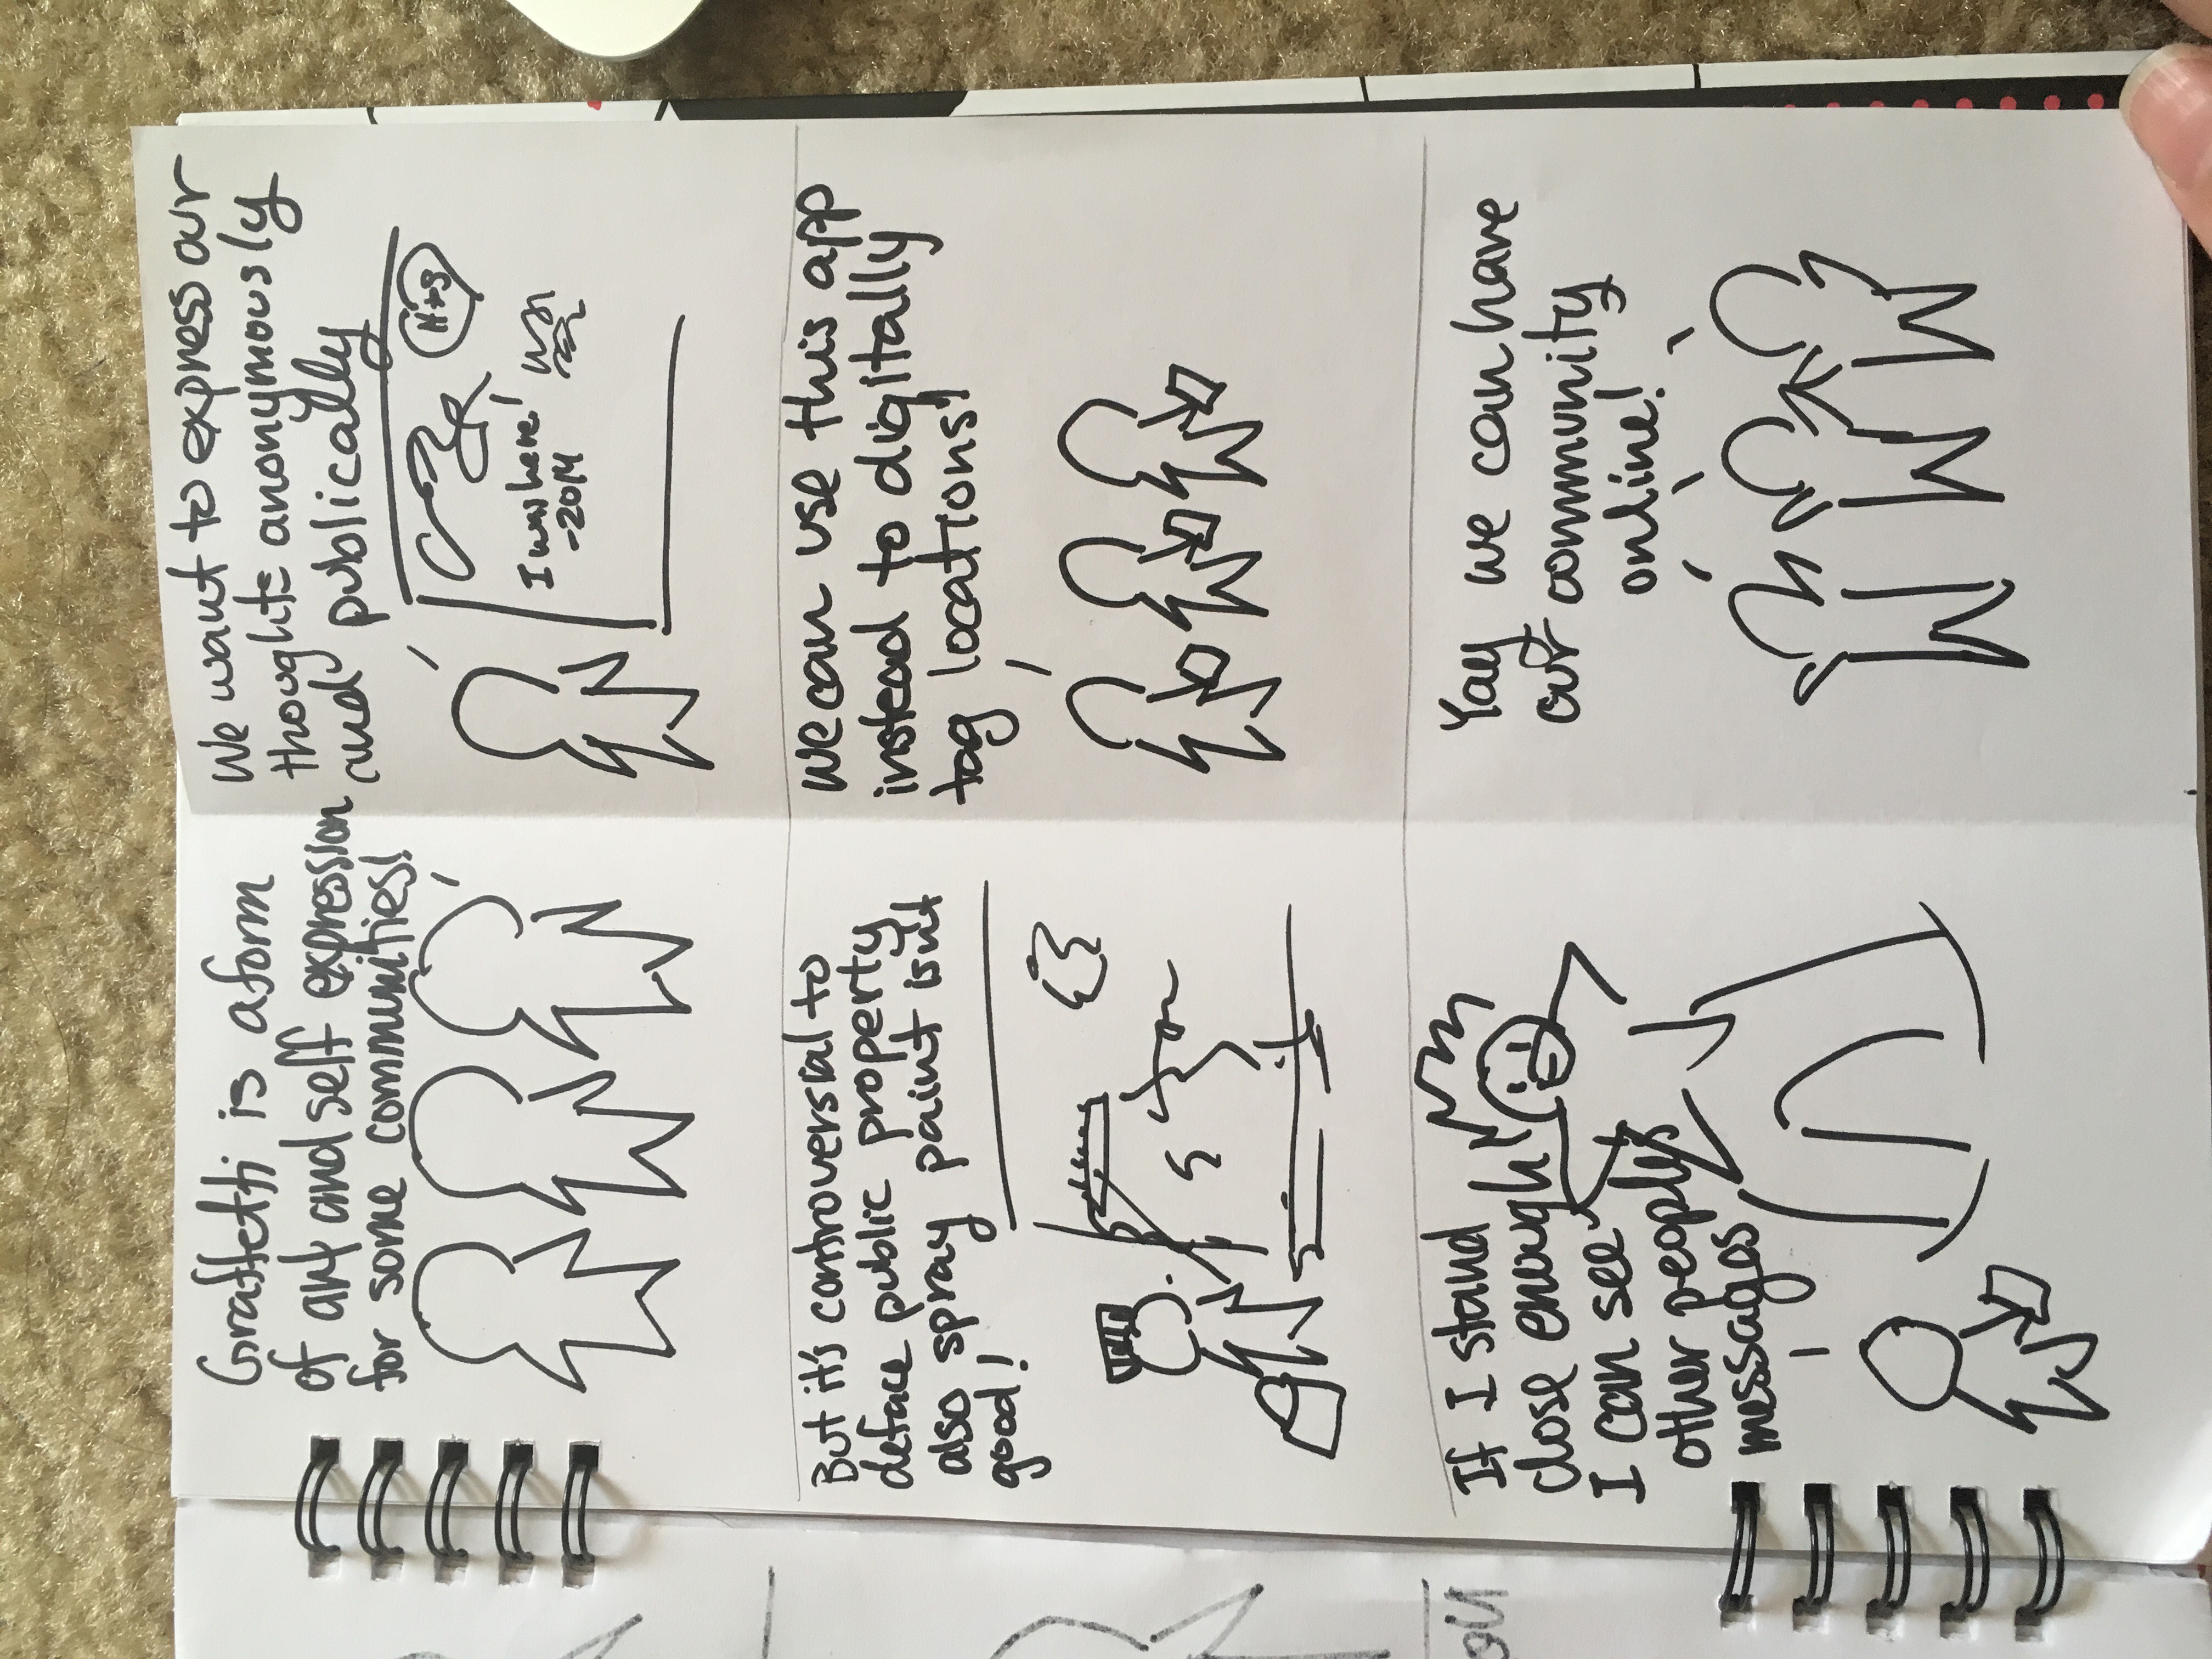 Graffetti is a form
of art and self expression
for some communities!
We want to express our
thoughts anonymously
and publically
H+S
I was here!
-2014
But it's controversial to
deface public property
also spray paint isnt
good!
We can use this app
instead to digitally
tag locations!
If I stand
close enough!
I can see
other peoples
messages
Yay we can have
our community
online!